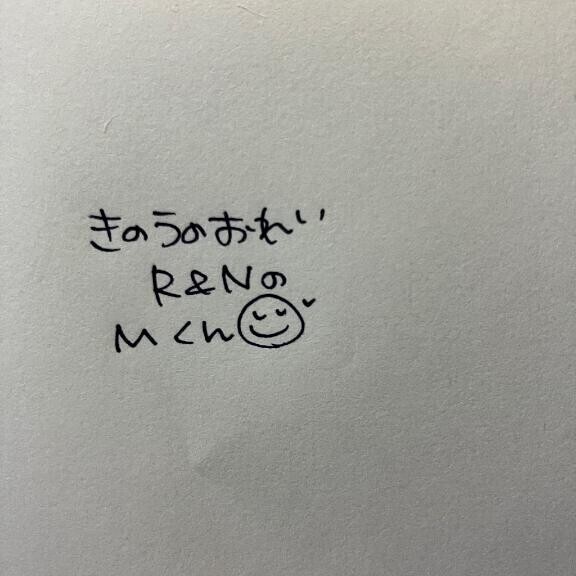 きのうのおれい
R&Nの
Mくん